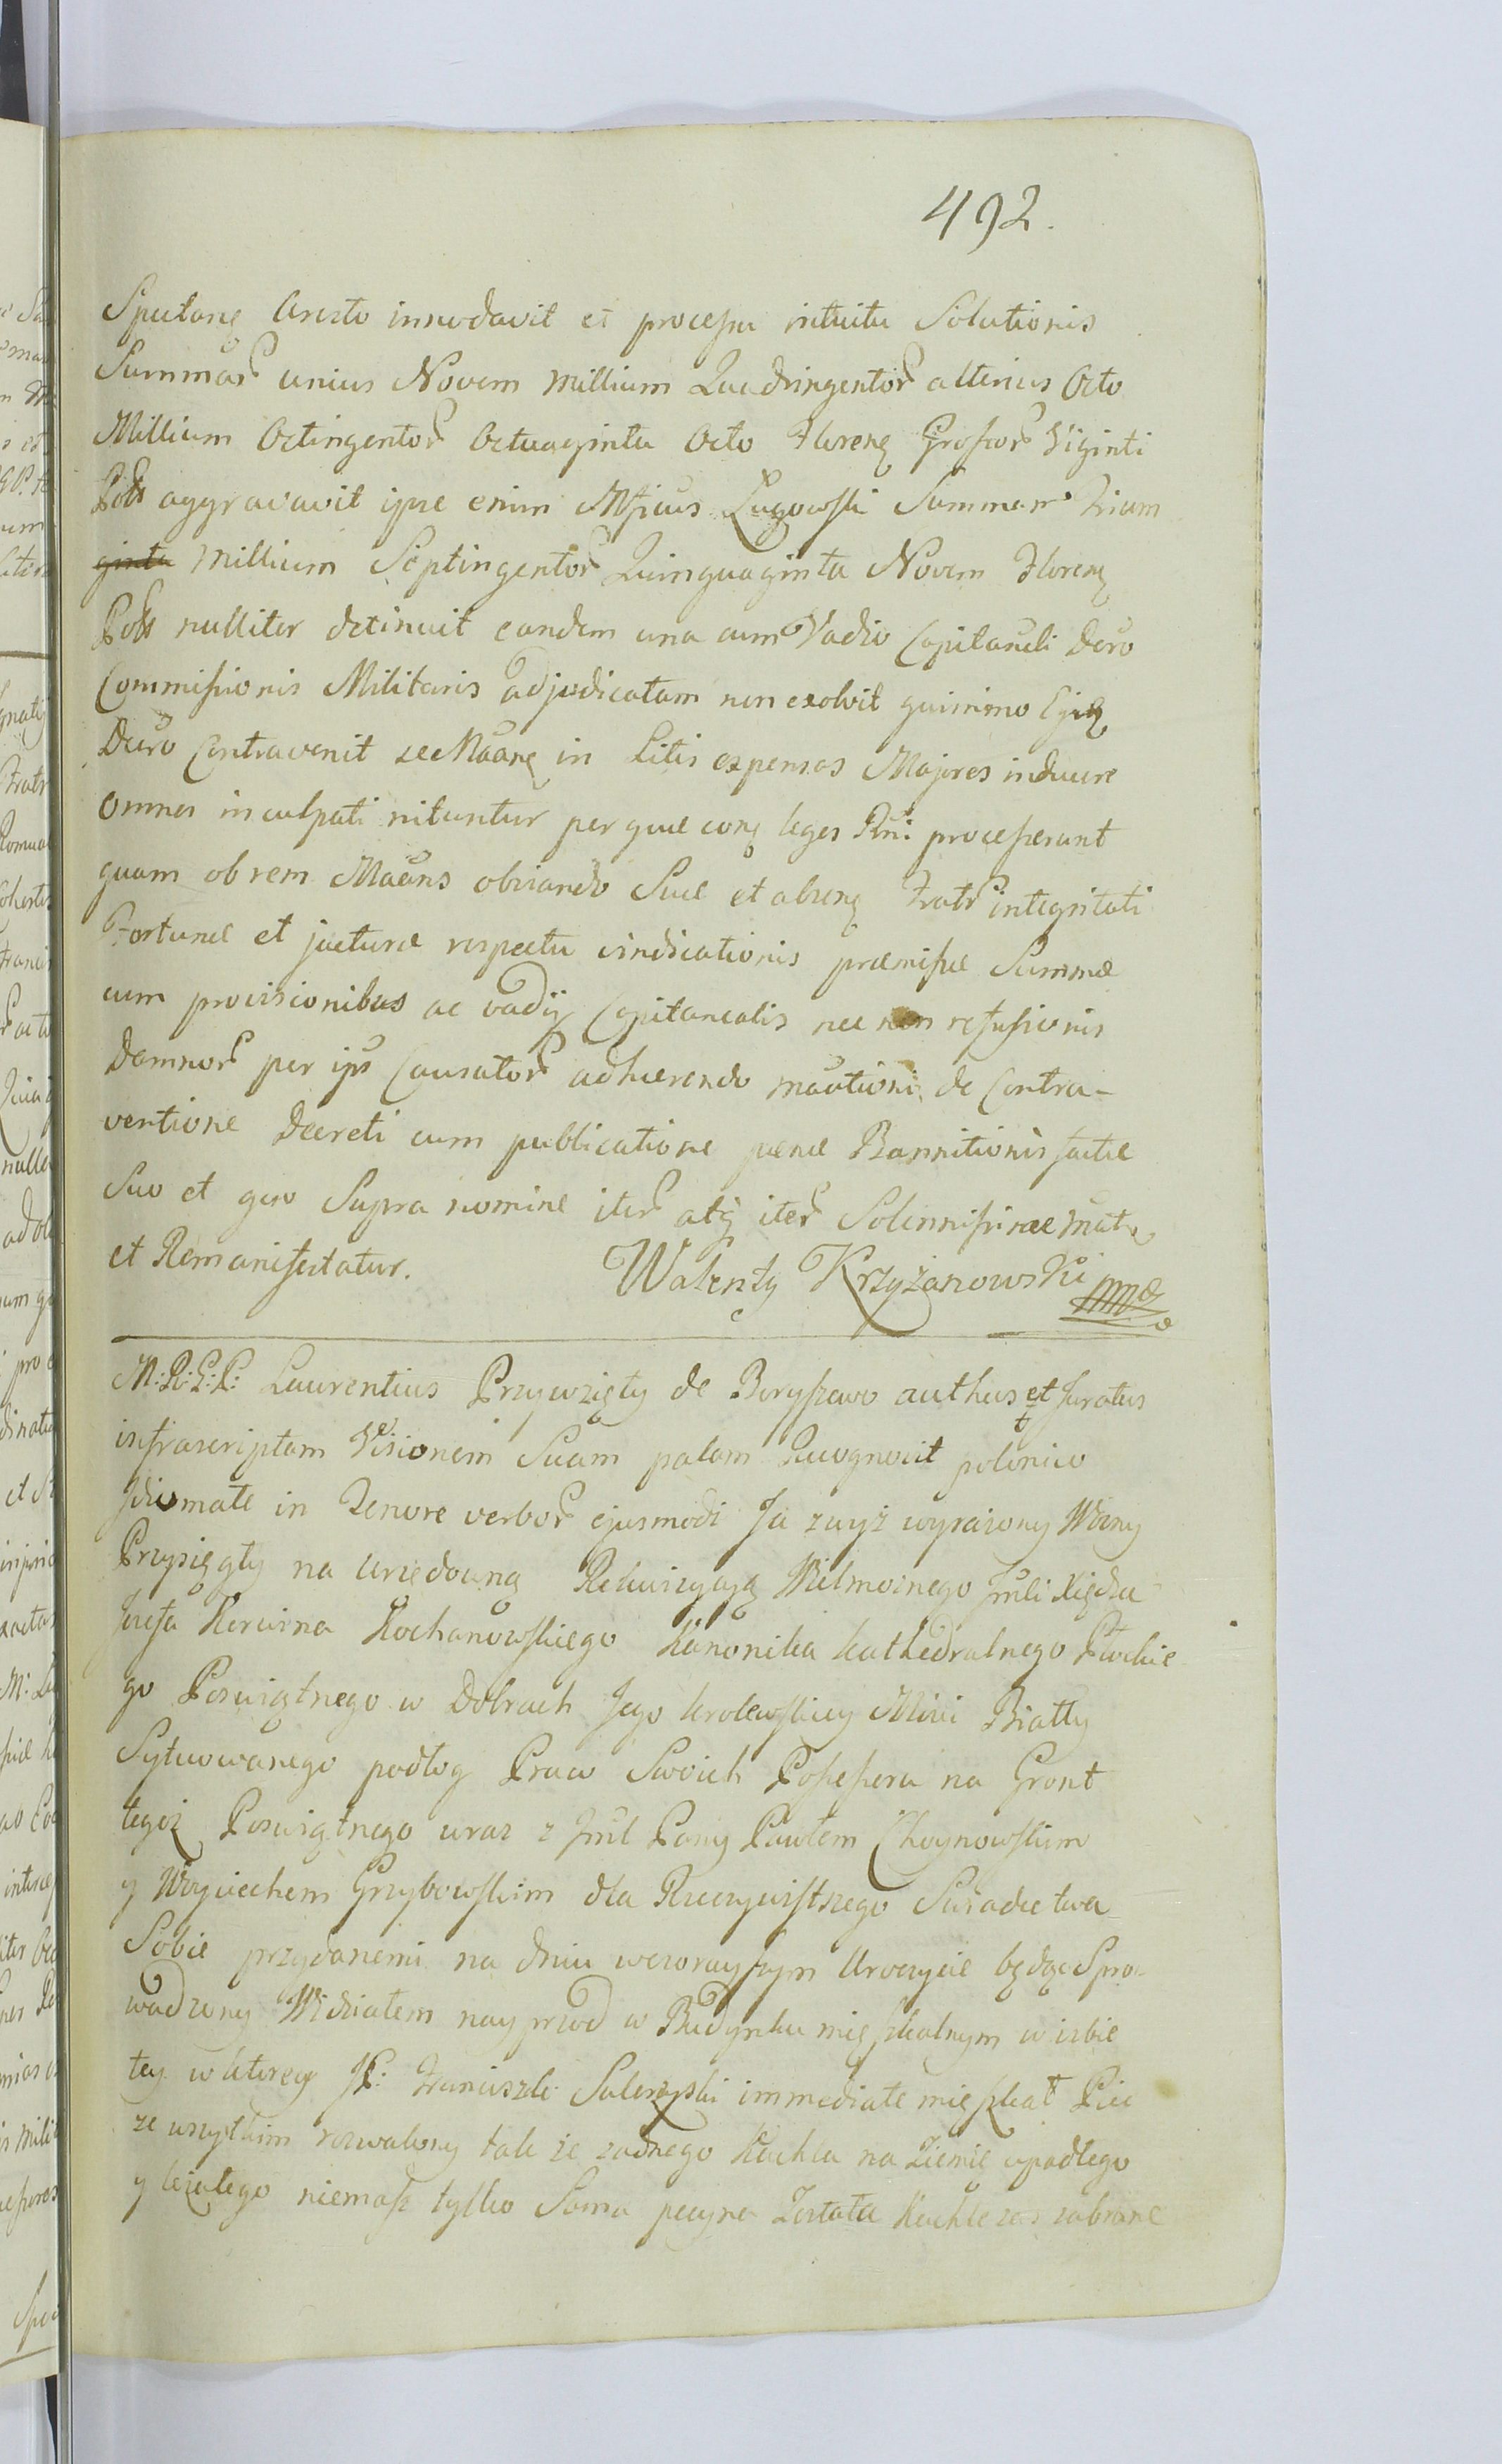 492.
Sputang Aresto innodavit et processu intuitu Solutionis
Summar unius Novem Millium Quadringentor alterius Octo
Millium Octingentor Octuaginta Octo Floreng Grossor Viginti
Pols aggravavit ipse enim Mficus Lugowski Summam Trium
ginta Millium Septingentor Quinquaginta Novem Floreng
Pols nulliter detinuit eandem una cum Vadio Capitaneali Decro
Commissionis Militaris adjudicatam non exolvit quinimo
Decro Contravenit see Maang in Litis expensas Majores inducere
omnes inculpati nituntur per quae cong leges Rni processerunt
quam ob rem Maans obviando Suae et abseng Fratr integritati
Fortunae et jacturae respectu vindicationis praemissae Summae
cum provisionibus ac vadij Capitanealis nec non refusionis
Damnor per ips Causator adhaerendo maationi de Contra-
ventione Decreti cum publicatione paenae Bannitionis factae
Suo et quo Supra nomine iter atq iter Solennissime
et Remanifestatur. Walenty Krzyżanowski mp
M: R: G: P: Laurentius Przywzięty de Boryszewo authus et Juratus
infrascriptam Visionem Suam palam Recognovit polonico
Idiomate in Tenore verbor ejusmodi Ja zwyż wyrażony Wozny
Przysięgły na Urzedowną Rekwizycyą Wielmoznego Jmli Xiędza
Jozefa Korwina Kochanowskiego Kanonika Kathedralnego Płockie
go Poswiątnego w Dobrach Jego Krolewskiey Mści Białły
Sytuowanego podłog Praw Swoich Possessera na Gront
tegoż Poswiątnego wraz z Jml Pany Pawłem Choynowskim
y Woyciechem Grzybowskim dla Rzeczywistszego Swiadectwa
Sobie przydanemi na dniu wczorayszym Uroczyscie będąc Spro-
wadzony Widziałem nayprzod w Budynku mięszkalnym w izbie
tey w ktorey JP: Franciszek immediate mięszkał Piec
ze wszytkim rozwalony tak że żadnego Kachla na Ziemię upadłego
y leżałego niemasz tylko Sama pecyna Zostata Kachle zas zabrane